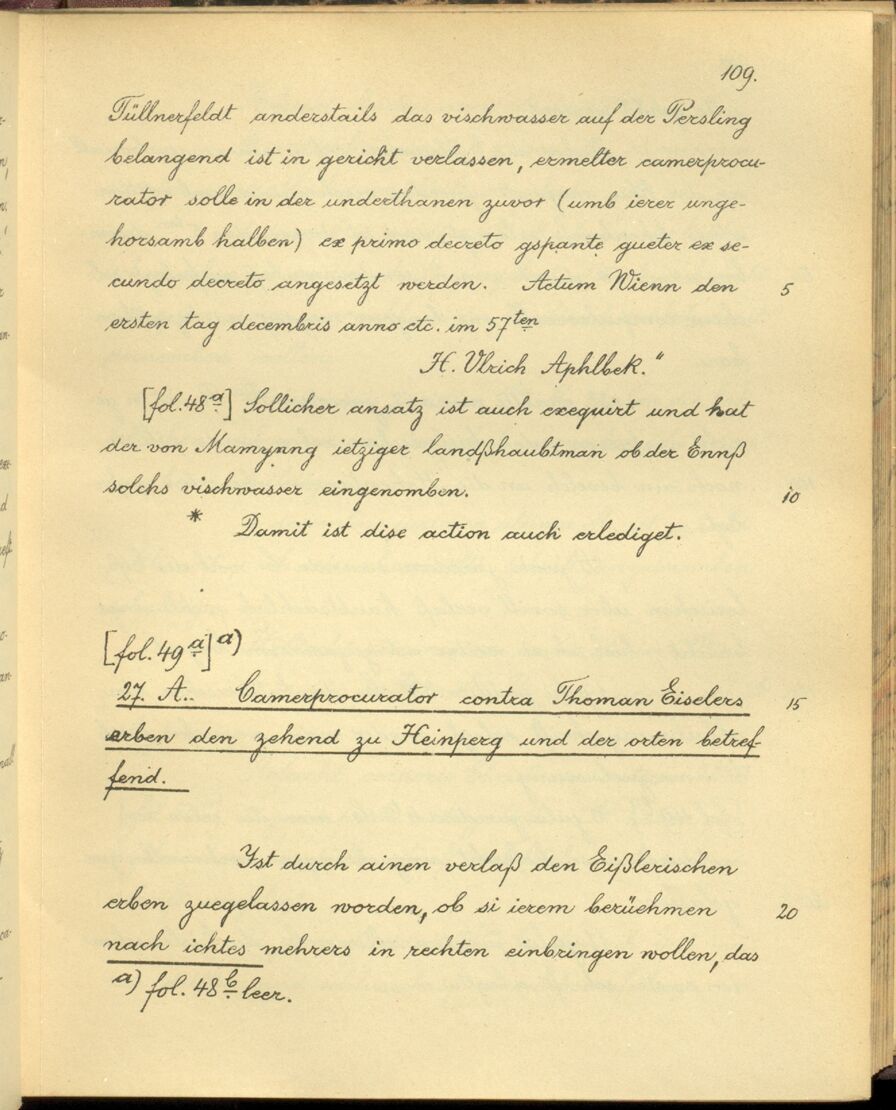 109.
Tüllnerfeldt anderstails das vischwasser auf der Persling
belangend ist in gericht verlassen, ermelter camerprocu-
rator solle in der underthanen zuvor (umb ierer unge-
horsamb halben) ex primo decreto gspante gueter ex se-
cundo decreto angesetzt werden. Actum Wienn den 5
ersten tag decembris anno etc. im 57ten
H. Ulrich Aphlbek."
[fol. 48a] Sollicher ansatz ist auch exequirt und hat
der von Mamynng ietziger landßhaubtman ob der Ennß
solchs vischwasser eingenomben. 10
* Damit ist dise action auch erlediget.
[fol. 49a] a)
27. A.. Camerprocurator contra Thoman Eiselers 15
erben den zehend zu Heinperg und der orten betref-
fend.
Ist durch ainen verlaß den Eißlerischen
erben zuegelassen worden, ob si ierem berüehmen 20
nach ichtes mehrers in rechten einbringen wollen, das
a) fol. 48b leer.